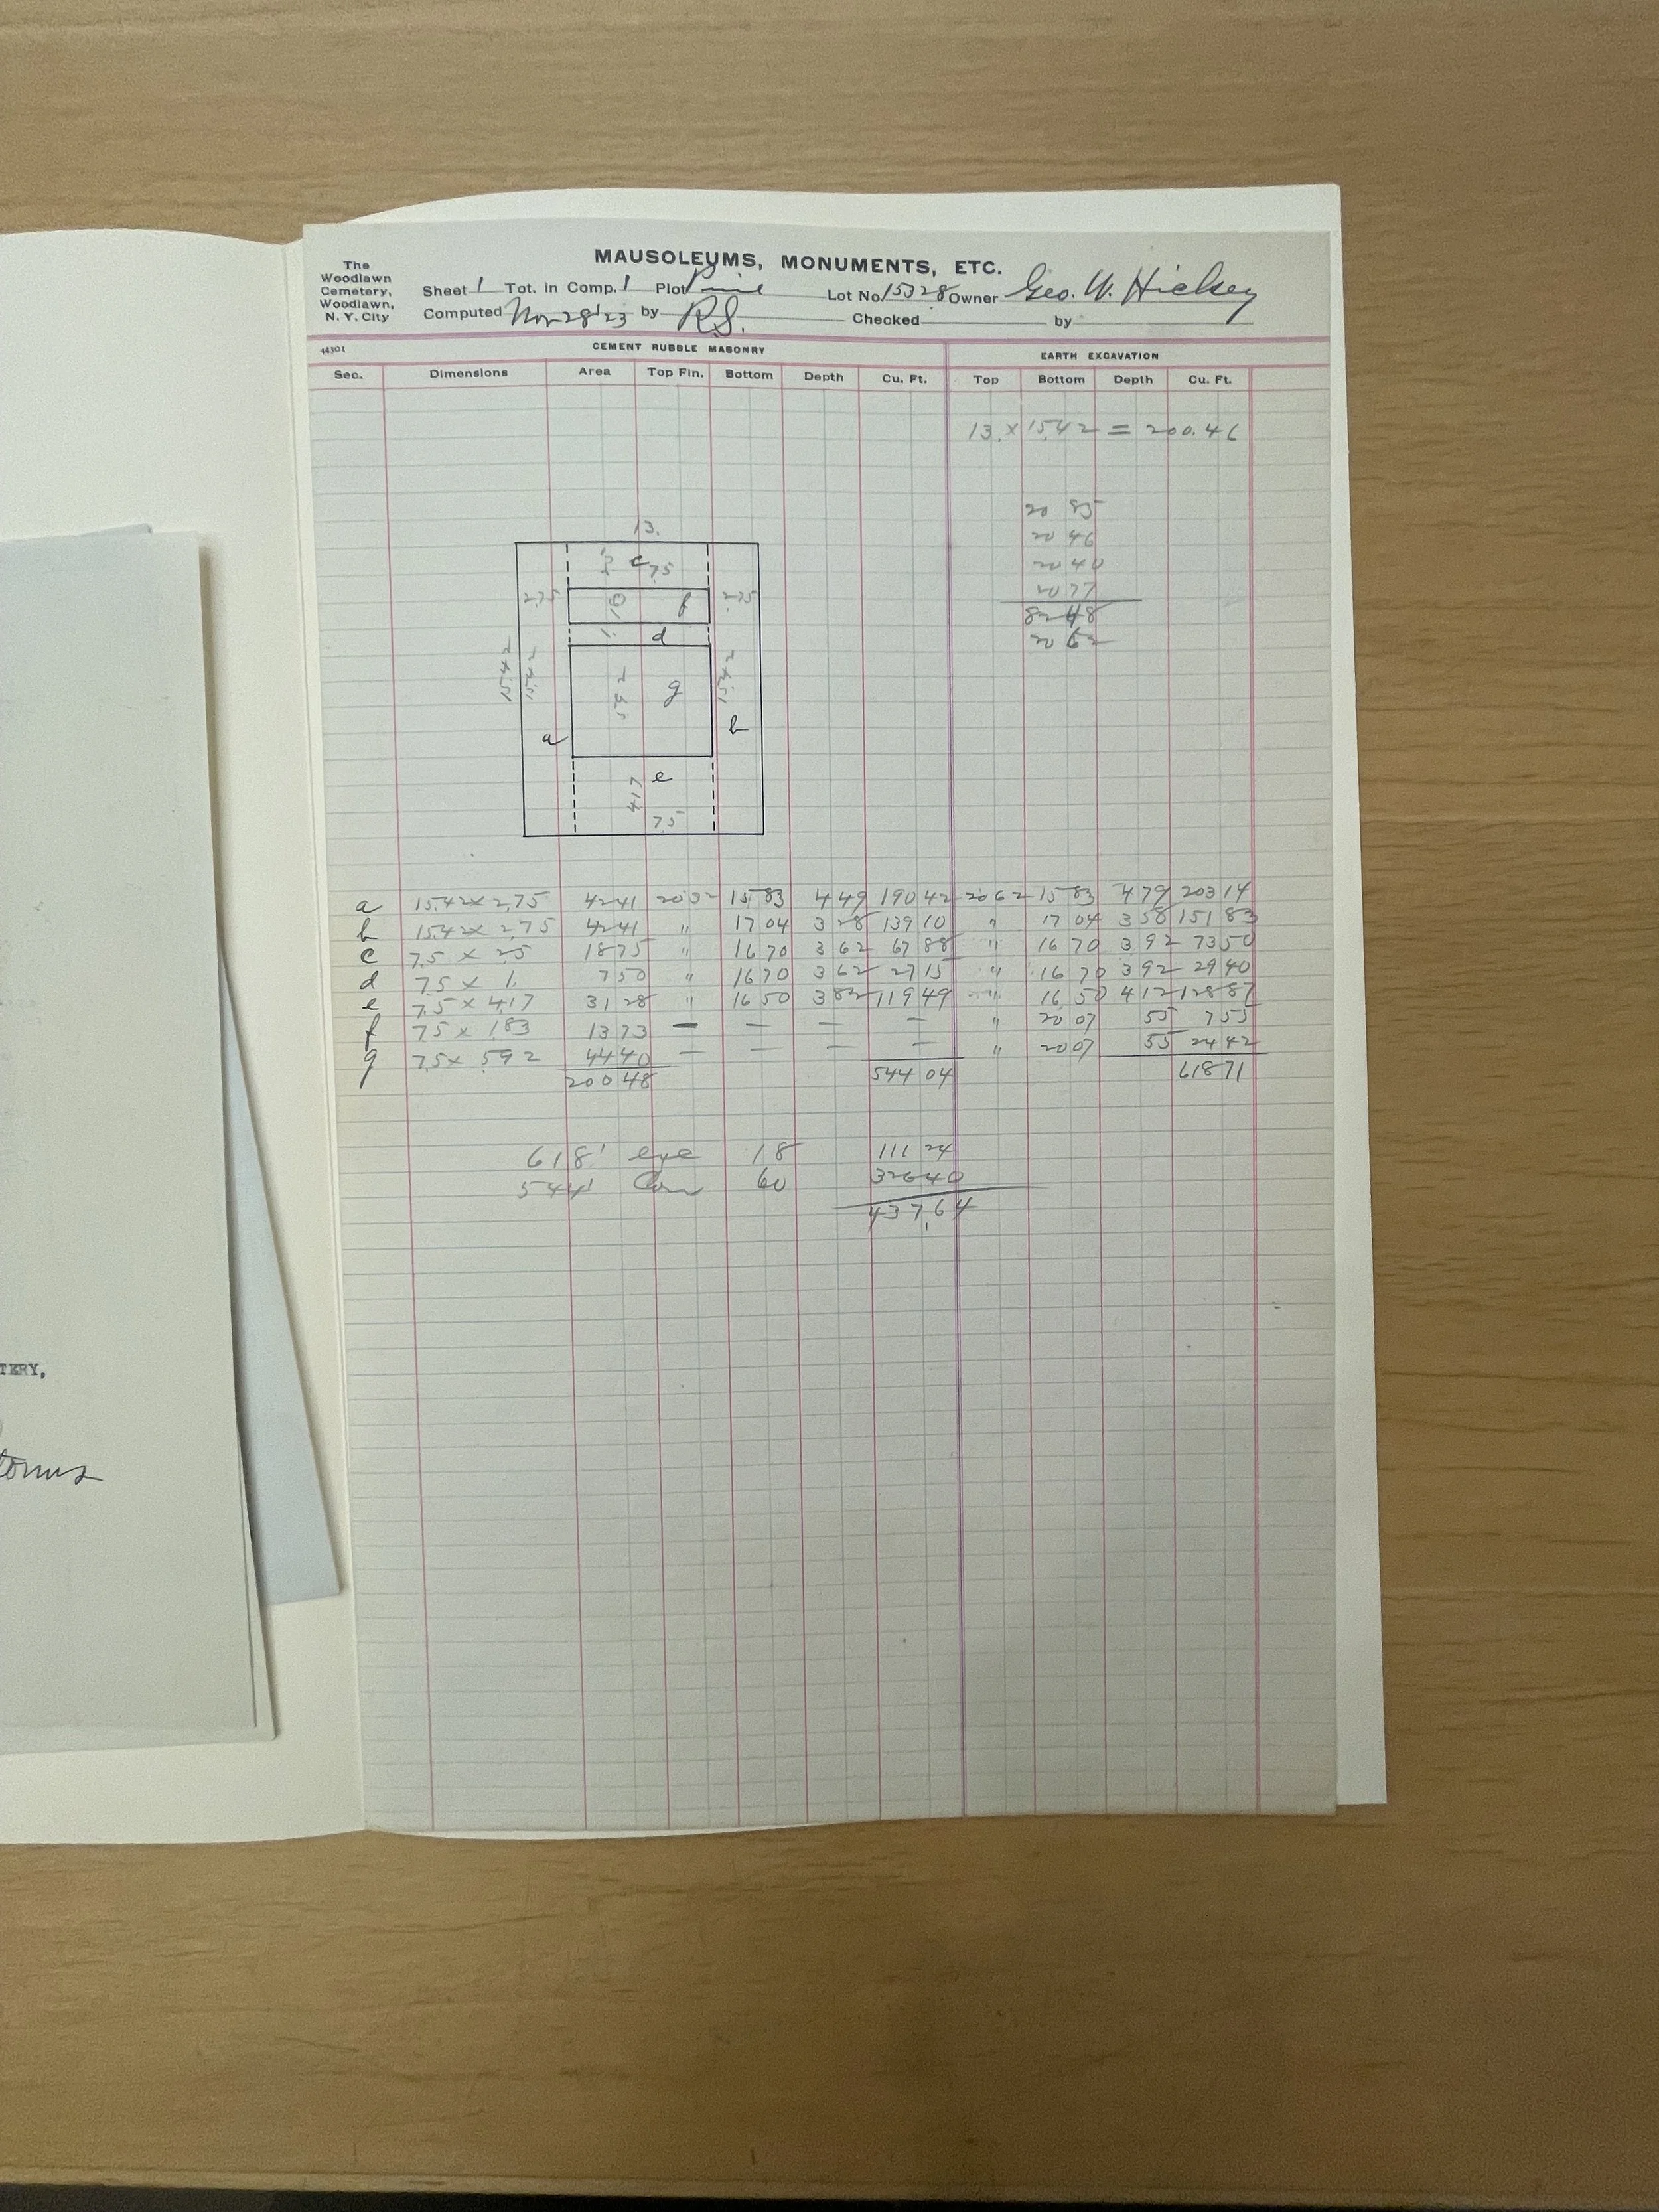 The
Woodlawn
Cemetery,
Woodlawn,
N. Y. City
MAUSOLEUMS, MONUMENTS, ETC.
Sheet 1 Tot. in Comp. 1 Plot Pine Lot No 15328 Owner Geo. W. Hickey
Computed Nov 28 '23 by R.S. Checked by
44301 CEMENT RUBBLE MASONRY EARTH EXCAVATION
Sec. Dimensions Area Top Fin. Bottom Depth Cu. Ft. Top Bottom Depth Cu. Ft.
13. x 15.42 = 200.46
20 85
20 46
20 40
20 77
82 48
20 62
13.
c 75
2.75 f 2.75
1. d
15.42 15.42 5.92 g 15.42
a b
e
417
75
a 15.42 x 2.75 42 41 20 32 15 83 4 49 190 42 20 62 15 83 4 79 203 14
b 15.42 x 2.75 42 41 " 17 04 3 28 139 10 " 17 04 3 58 151 83
c 7.5 x 2.5 18 75 " 16 70 3 62 67 88 " 16 70 3 92 73 50
d 7.5 x 1. 7 50 " 16 70 3 62 27 15 " 16 70 3 92 29 40
e 7.5 x 4.17 31 28 " 16 50 3 82 119 49 " 16 50 4 12 128 87
f 7.5 x 1.83 13 73 — — — — " 20 07 55 7 55
g 7.5 x 5.92 44 40 — — — — " 20 07 55 24 42
200 48 544 04 618 71
618' exc 18 111 24
544' Con 60 326 40
437.64
TERY,